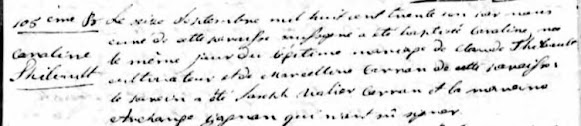 105ème B Le seize Septembre mil huit cent trente un par nous
Caroline curé de cette paroisse soussigné a été baptisé Caroline, née
Thibault le même jour du légitime mariage de Claude Thibault
cultivateur et de Marcelline Carran de cette paroisse
le parain a été Joseph Valier Carran et la maraine
Archange Gagnon qui n'ont sû signer.